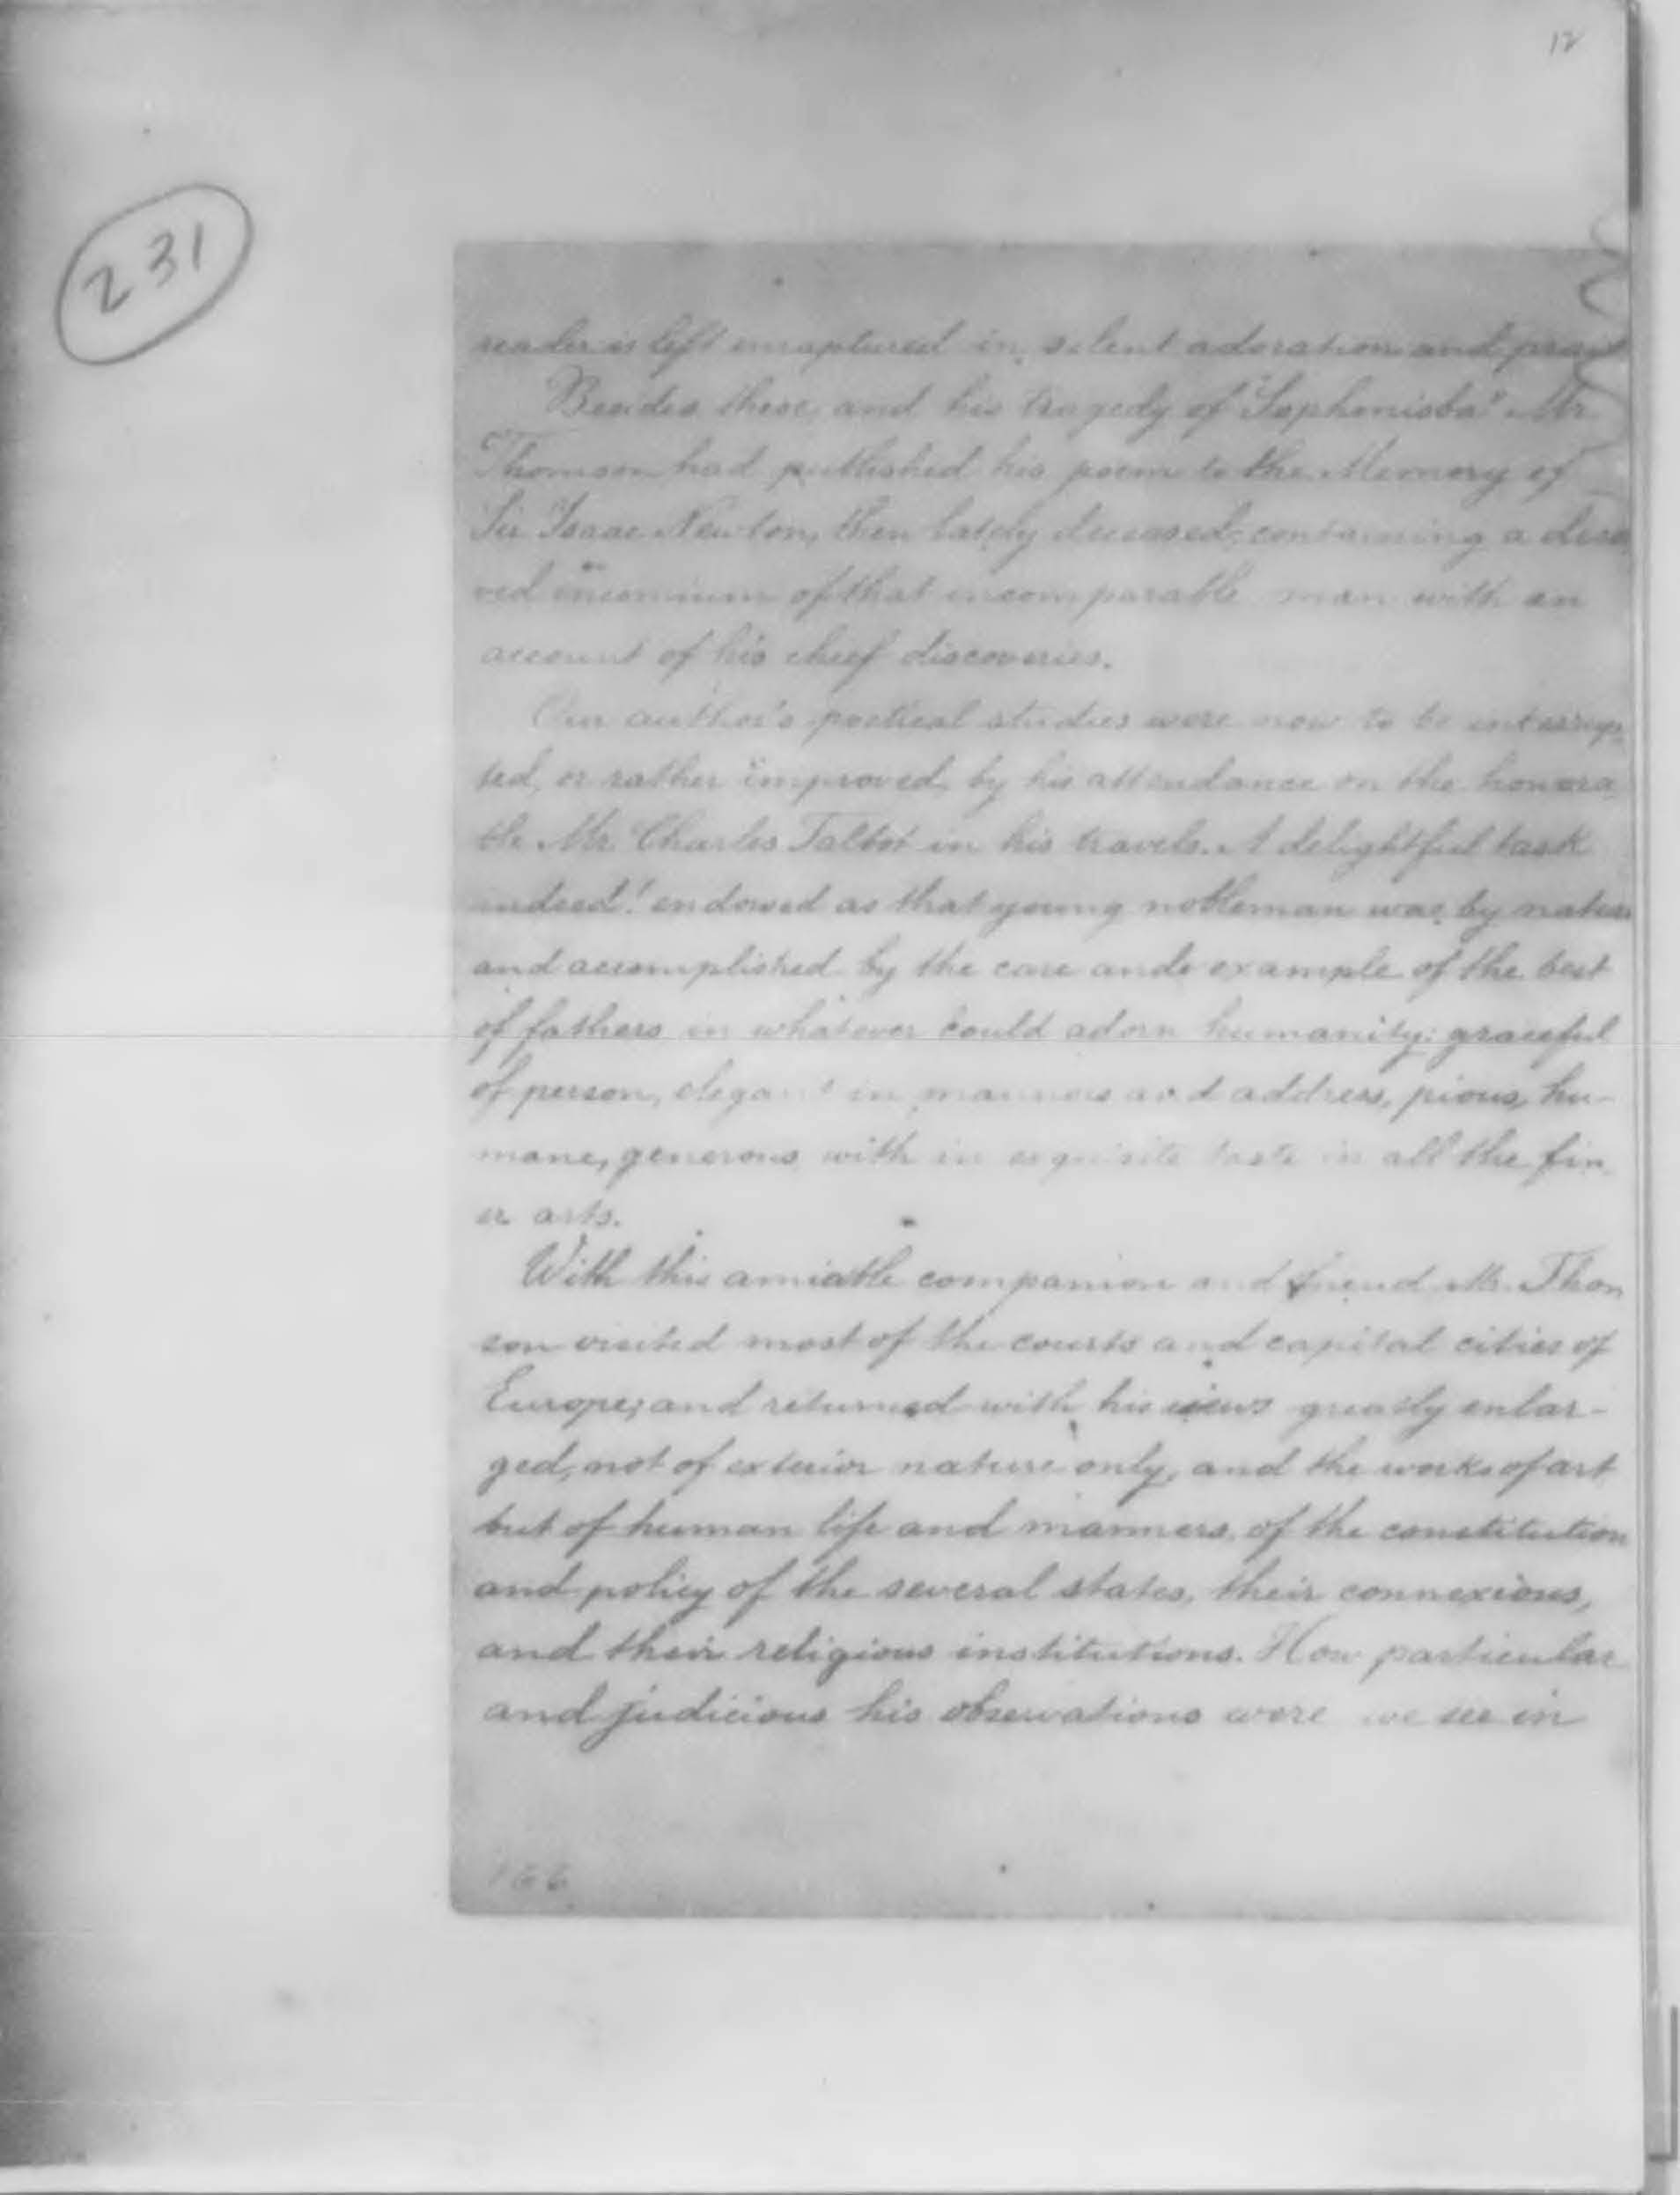 12
231
reader is left enraptured in silent adoration and prais
Besides these, and his tragedy of "Sophonisba" Mr
Thomson had published his poem to the Memory of
Sir Isaac Newton, then lately deceased; containing a dese
ved encomium of that incomparable man with an
account of his chief discoveries.
Our author's poetical studies were now to be interrup-
ted, or rather improved, by his attendance on the honora-
ble Mr. Charles Talbot in his travels. A delightful task
indeed! endowed as that young nobleman was by nature
and accomplished by the care and example of the best
of fathers in whatever could adorn humanity: graceful
of person, elegant in manners and address, pious, hu-
mane, generous with in exquisite taste in all the fin
er arts.
With this amiable companion and friend Mr. Thom
son visited most of the courts and capital cities of
Europe; and returned with his views greatly enlar-
ged, not of exterior nature only, and the works of art
but of human life and manners, of the constitution
and policy of the several states, their connexions,
and their religious institutions. How particular
and judicious his observations were we see in
166